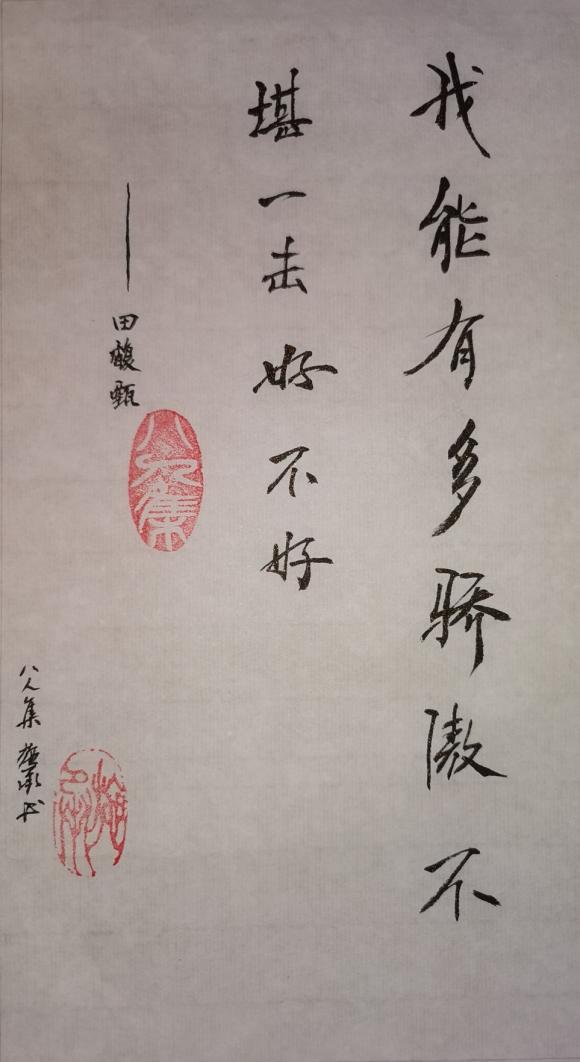 我能有多骄傲不
堪一击好不好
——田馥甄
八人集
八人集 书